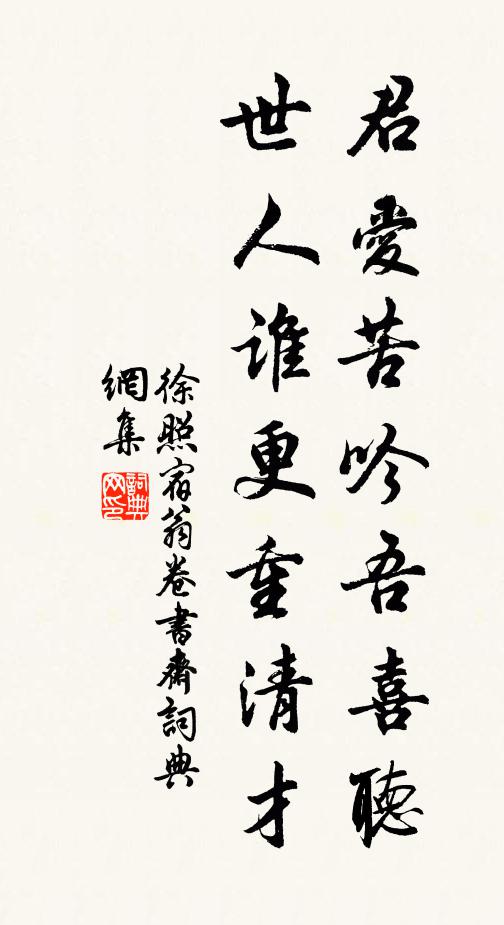 君愛苦吟吾喜聽
世人誰更重清才
徐照宿翁卷書齋詞典
網集
詞典
网印